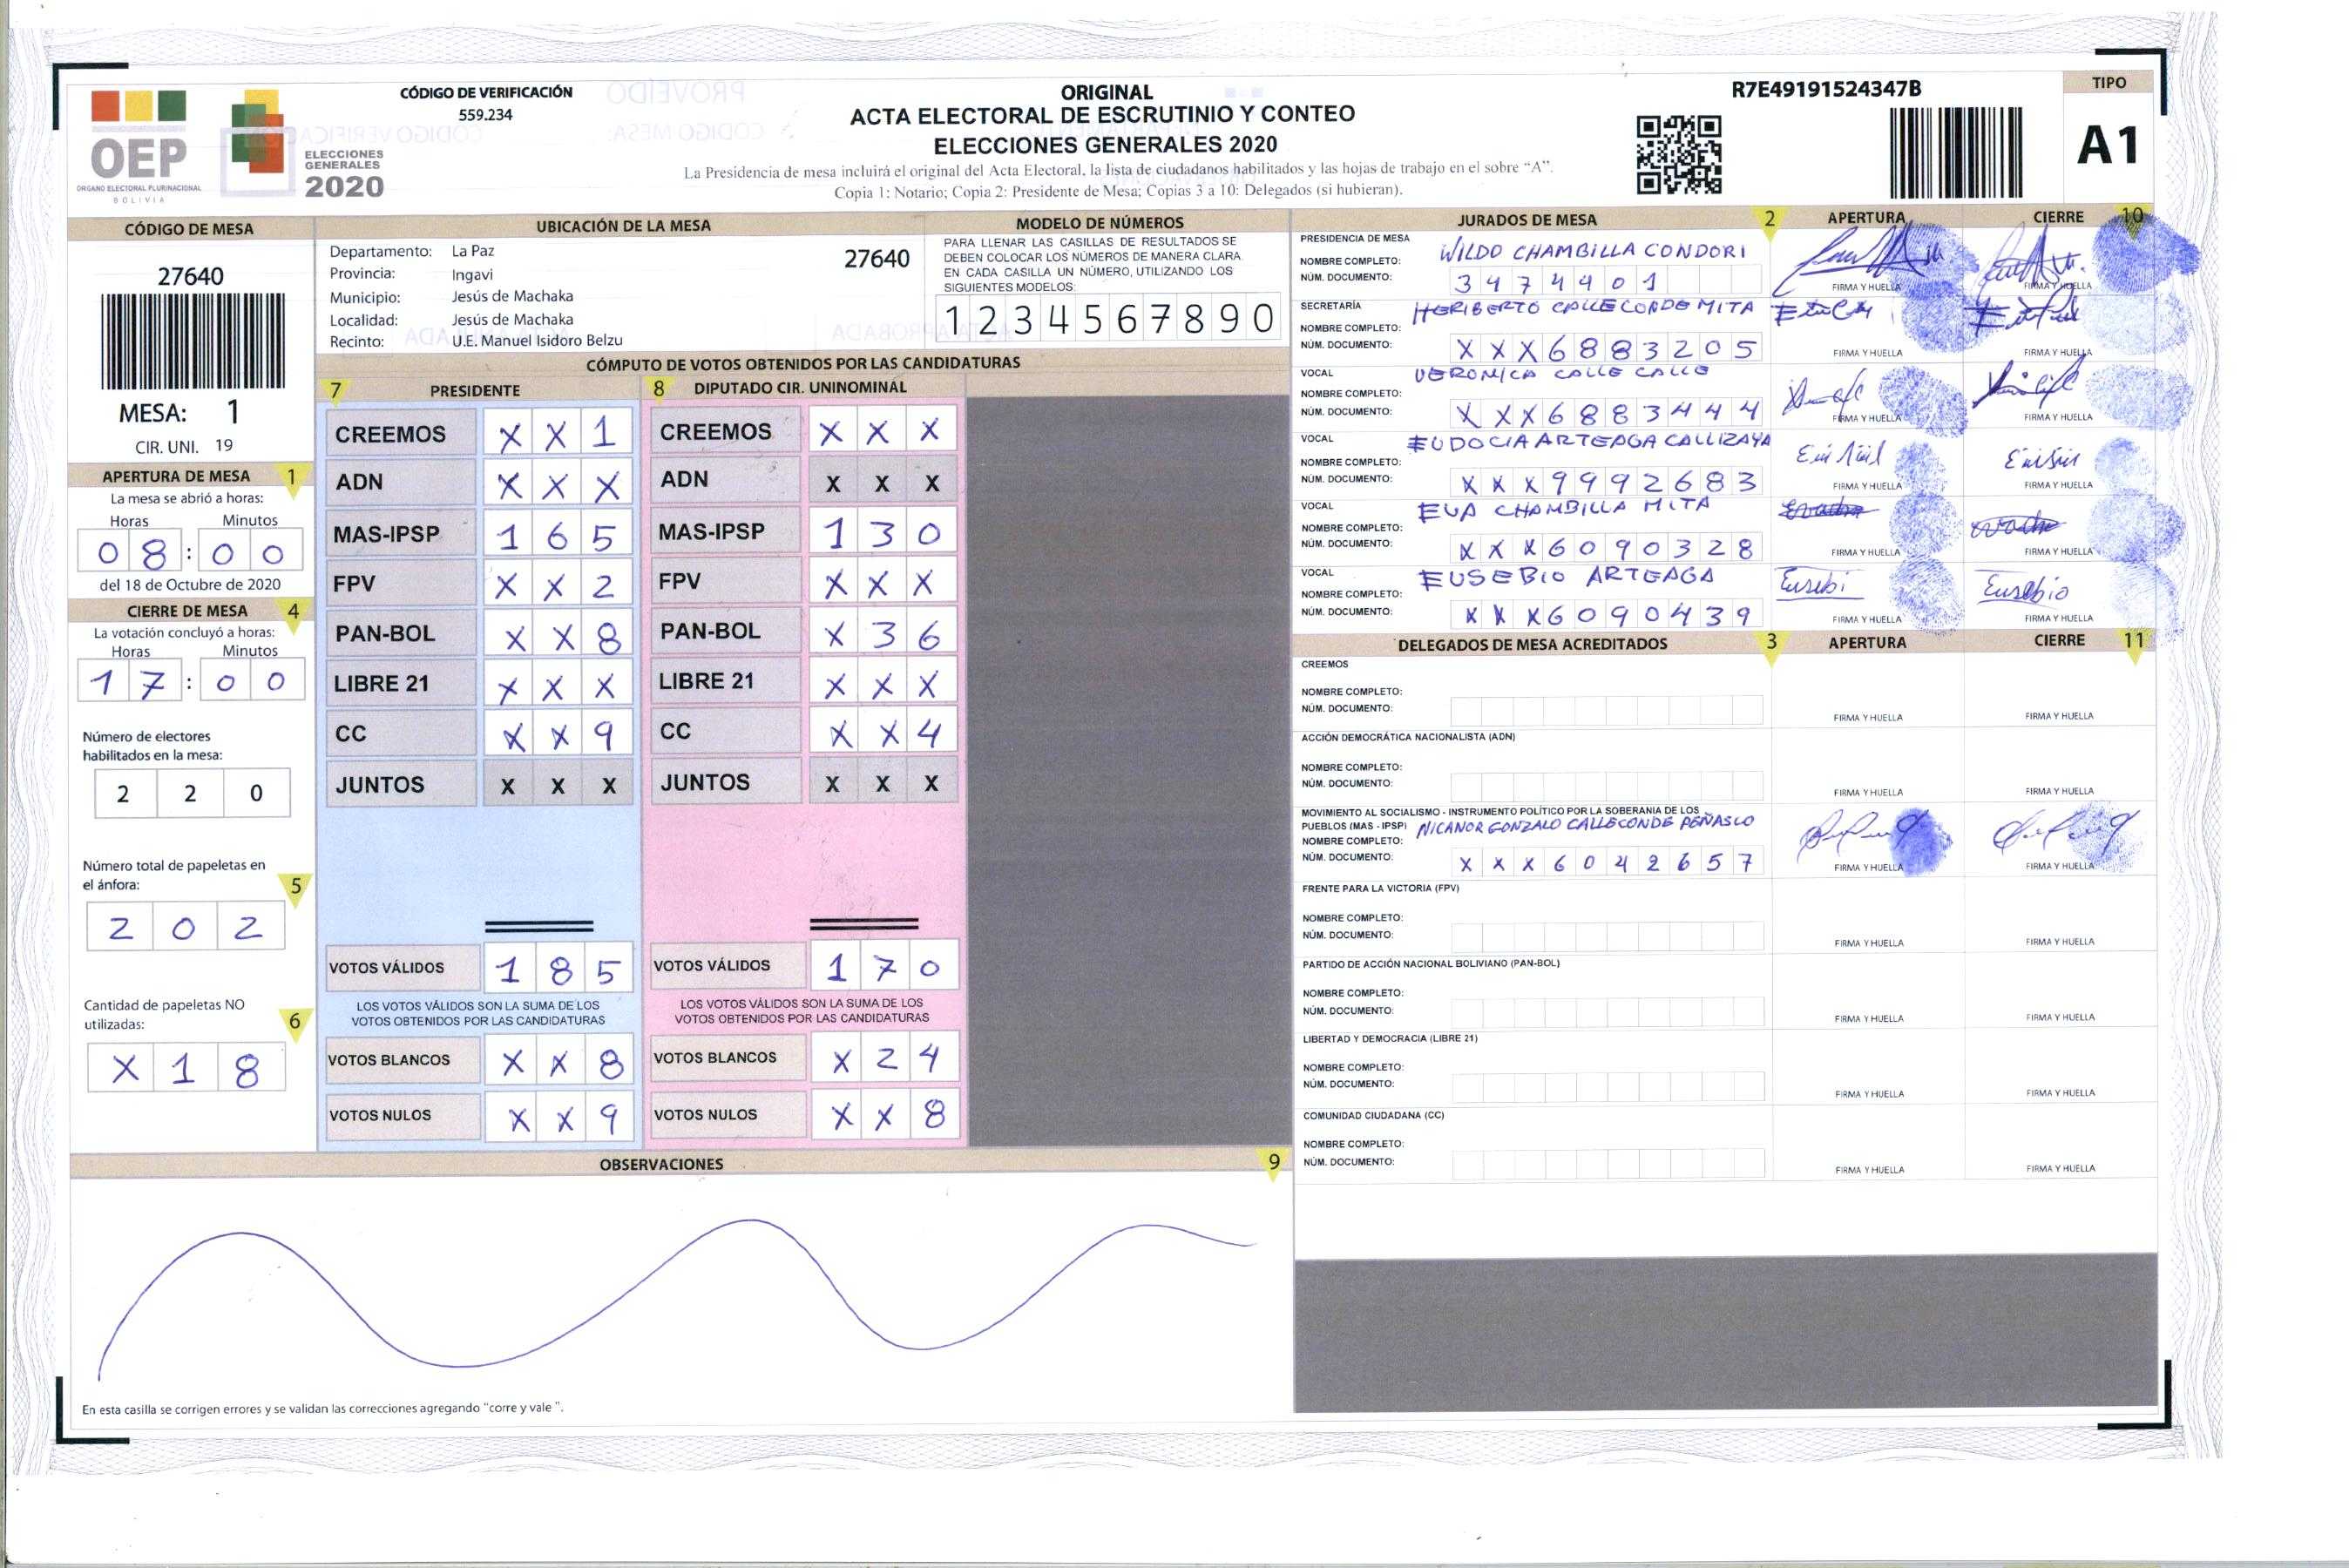 CÓDIGO DE VERIFICACIÓN
559.234
ORIGINAL
ACTA ELECTORAL DE ESCRUTINIO Y CONTEO
ELECCIONES GENERALES 2020
La Presidencia de mesa incluirá el original del Acta Electoral, la lista de ciudadanos habilitados y las hojas de trabajo en el sobre “A”.
Copia 1: Notario; Copia 2: Presidente de Mesa; Copias 3 a 10: Delegados (si hubieran).
R7E49191524347B
TIPO
A1
OEP
ÓRGANO ELECTORAL PLURINACIONAL
BOLIVIA
ELECCIONES
GENERALES
2020
CÓDIGO DE MESA
27640
MESA: 1
CIR. UNI. 19
APERTURA DE MESA 1
La mesa se abrió a horas:
Horas Minutos
0 8 : 0 0
del 18 de Octubre de 2020
CIERRE DE MESA 4
La votación concluyó a horas:
Horas Minutos
1 7 : 0 0
Número de electores
habilitados en la mesa:
2 2 0
Número total de papeletas en
el ánfora: 5
2 0 2
Cantidad de papeletas NO
utilizadas: 6
X 1 8
UBICACIÓN DE LA MESA
Departamento: La Paz 27640
Provincia: Ingavi
Municipio: Jesús de Machaka
Localidad: Jesús de Machaka
Recinto: U.E. Manuel Isidoro Belzu
MODELO DE NÚMEROS
PARA LLENAR LAS CASILLAS DE RESULTADOS SE
DEBEN COLOCAR LOS NÚMEROS DE MANERA CLARA.
EN CADA CASILLA UN NÚMERO, UTILIZANDO LOS
SIGUIENTES MODELOS:
1 2 3 4 5 6 7 8 9 0
CÓMPUTO DE VOTOS OBTENIDOS POR LAS CANDIDATURAS
7 PRESIDENTE
CREEMOS X X 1
ADN X X X
MAS-IPSP 1 6 5
FPV X X 2
PAN-BOL X X 8
LIBRE 21 X X X
CC X X 9
JUNTOS X X X
VOTOS VÁLIDOS 1 8 5
LOS VOTOS VÁLIDOS SON LA SUMA DE LOS
VOTOS OBTENIDOS POR LAS CANDIDATURAS
VOTOS BLANCOS X X 8
VOTOS NULOS X X 9
8 DIPUTADO CIR. UNINOMINAL
CREEMOS X X X
ADN X X X
MAS-IPSP 1 3 0
FPV X X X
PAN-BOL X 3 6
LIBRE 21 X X X
CC X X 4
JUNTOS X X X
VOTOS VÁLIDOS 1 7 0
LOS VOTOS VÁLIDOS SON LA SUMA DE LOS
VOTOS OBTENIDOS POR LAS CANDIDATURAS
VOTOS BLANCOS X 2 4
VOTOS NULOS X X 8
OBSERVACIONES 9
En esta casilla se corrigen errores y se validan las correcciones agregando “corre y vale ”.
JURADOS DE MESA 2 APERTURA CIERRE 10
PRESIDENCIA DE MESA
NOMBRE COMPLETO: WILDO CHAMBILLA CONDORI
NÚM. DOCUMENTO: 3 4 7 4 4 0 1
FIRMA Y HUELLA FIRMA Y HUELLA
SECRETARÍA
NOMBRE COMPLETO: HERIBERTO CALLECONDE MITA
NÚM. DOCUMENTO: X X X 6 8 8 3 2 0 5
FIRMA Y HUELLA FIRMA Y HUELLA
VOCAL
NOMBRE COMPLETO: VERONICA CALLE CALLE
NÚM. DOCUMENTO: X X X 6 8 8 3 4 4 4
FIRMA Y HUELLA FIRMA Y HUELLA
VOCAL
NOMBRE COMPLETO: EUDOCIA ARTEAGA CALLIZAYA
NÚM. DOCUMENTO: X X X 9 9 9 2 6 8 3
FIRMA Y HUELLA FIRMA Y HUELLA
VOCAL
NOMBRE COMPLETO: EVA CHAMBILLA MITA
NÚM. DOCUMENTO: X X X 6 0 9 0 3 2 8
FIRMA Y HUELLA FIRMA Y HUELLA
VOCAL
NOMBRE COMPLETO: EUSEBIO ARTEAGA
NÚM. DOCUMENTO: X X X 6 0 9 0 4 3 9
Eusebi Eusebio
FIRMA Y HUELLA FIRMA Y HUELLA
DELEGADOS DE MESA ACREDITADOS 3 APERTURA CIERRE 11
CREEMOS
NOMBRE COMPLETO:
NÚM. DOCUMENTO:
FIRMA Y HUELLA FIRMA Y HUELLA
ACCIÓN DEMOCRÁTICA NACIONALISTA (ADN)
NOMBRE COMPLETO:
NÚM. DOCUMENTO:
FIRMA Y HUELLA FIRMA Y HUELLA
MOVIMIENTO AL SOCIALISMO - INSTRUMENTO POLÍTICO POR LA SOBERANIA DE LOS
PUEBLOS (MAS - IPSP) NICANOR GONZALO CALLECONDE PEÑASCO
NOMBRE COMPLETO:
NÚM. DOCUMENTO: X X X 6 0 4 2 6 5 7
FIRMA Y HUELLA FIRMA Y HUELLA
FRENTE PARA LA VICTORIA (FPV)
NOMBRE COMPLETO:
NÚM. DOCUMENTO:
FIRMA Y HUELLA FIRMA Y HUELLA
PARTIDO DE ACCIÓN NACIONAL BOLIVIANO (PAN-BOL)
NOMBRE COMPLETO:
NÚM. DOCUMENTO:
FIRMA Y HUELLA FIRMA Y HUELLA
LIBERTAD Y DEMOCRACIA (LIBRE 21)
NOMBRE COMPLETO:
NÚM. DOCUMENTO:
FIRMA Y HUELLA FIRMA Y HUELLA
COMUNIDAD CIUDADANA (CC)
NOMBRE COMPLETO:
NÚM. DOCUMENTO:
FIRMA Y HUELLA FIRMA Y HUELLA